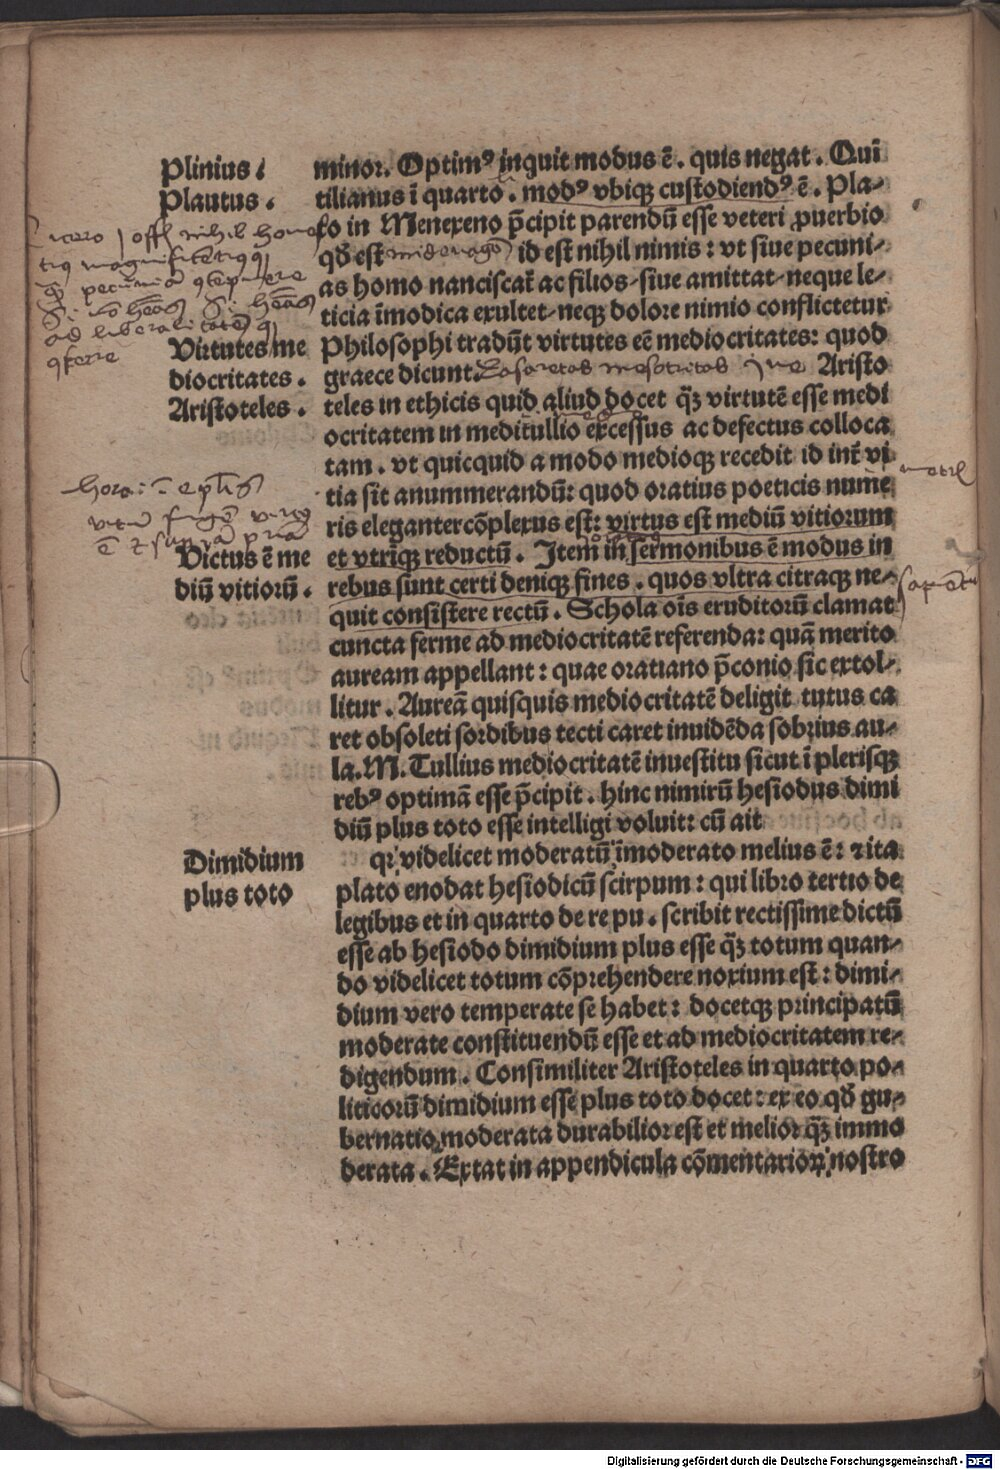 Plinius.
Plautus.
Virtutes me
diocritates.
Aristoteles.
Victus ē me
diū vitiorū.
Dimidium
plus toto
minor. Optimꝰ inquit modus ē. quis negat. Qui
tilianus ī quarto. modꝰ vbiqꝫ custodiendꝰ ē. Pla-
to in Menexeno p̄cipit parendū esse veteri ꝓuerbio
qđ est id est nihil nimis: vt siue pecuni-
as homo nanciscat̄ ac filios-siue amittat-neque le-
ticia īmodica exultet-neqꝫ dolore nimio conflictetur
Philosophi tradūt virtutes eē mediocritates: quod
graece dicunt Aristo
teles in ethicis quid aliud docet qꝫ̄ virtutē esse medi
ocritatem in meditullio excessus ac defectus colloca
tam. vt quicquid a modo medioqꝫ recedit id int̄ vi
tia sit anummerandū: quod oratius poeticis nume
ris eleganter cōplexus est: virtus est mediū vitiorum
et vtrīqꝫ reductū. Item in sermonibus ē modus in
rebus sunt certi deniqꝫ fines. quos vltra citraqꝫ ne-
quit consistere rectū. Schola oīs eruditorū clamat
cuncta ferme ad mediocritatē referenda: quā merito
auream appellant: quae oratiano p̄conio sic extol-
litur. Aureā quisquis mediocritatē deligit tutus ca
ret obsoleti sordibus tecti caret inuidēda sobrius au-
la. M. Tullius mediocritatē inuestitu sicut ī plerisqꝫ
rebꝰ optimā esse p̄cipit. hinc nimirū hesiodus dimi
diū plus toto esse intelligi voluit: cū ait
videlicet moderatū īmoderato melius ē: ⁊ ita
plato enodat hesiodicū scirpum: qui libro tertio de
legibus et in quarto de re pu. scribit rectissime dictū
esse ab hesiodo dimidium plus esse qꝫ̄ totum quan-
do videlicet totum cōprehendere noxium est: dimi-
dium vero temperate se habet: docetqꝫ principatū
moderate constituendū esse et ad mediocritatem re-
digendum. Consimiliter Aristoteles in quarto po-
liticorū dimidium esse plus toto docet: ex eo qđ gu-
bernatio moderata durabilior est et melior qꝫ̄ immo
derata. Extat in appendicula cōmentarioꝝ nostro
Digitalisierung gefördert durch die Deutsche Forschungsgemeinschaft - DFG